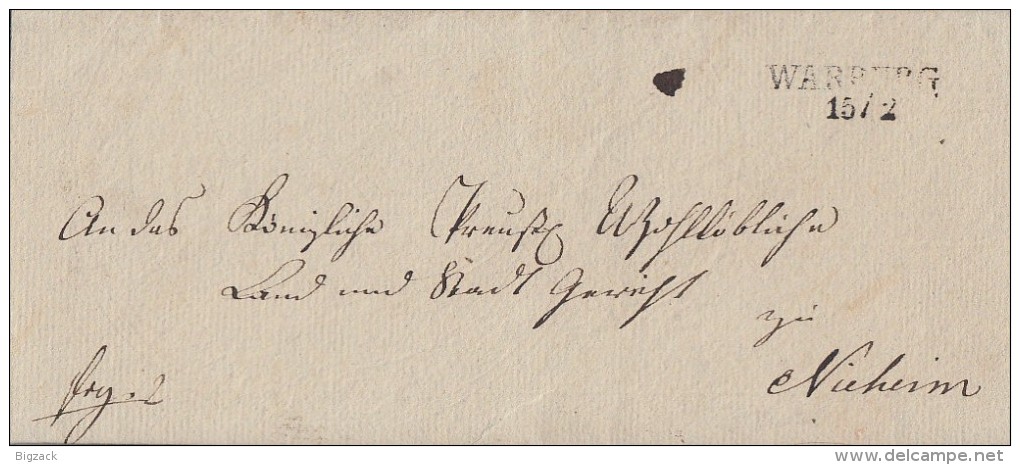 WARBURG
15/2
An das Königliche Preuß. Wohllöbliche
Land und Stadt Gericht
zu
Nieheim
Bigzack
delcampe.net